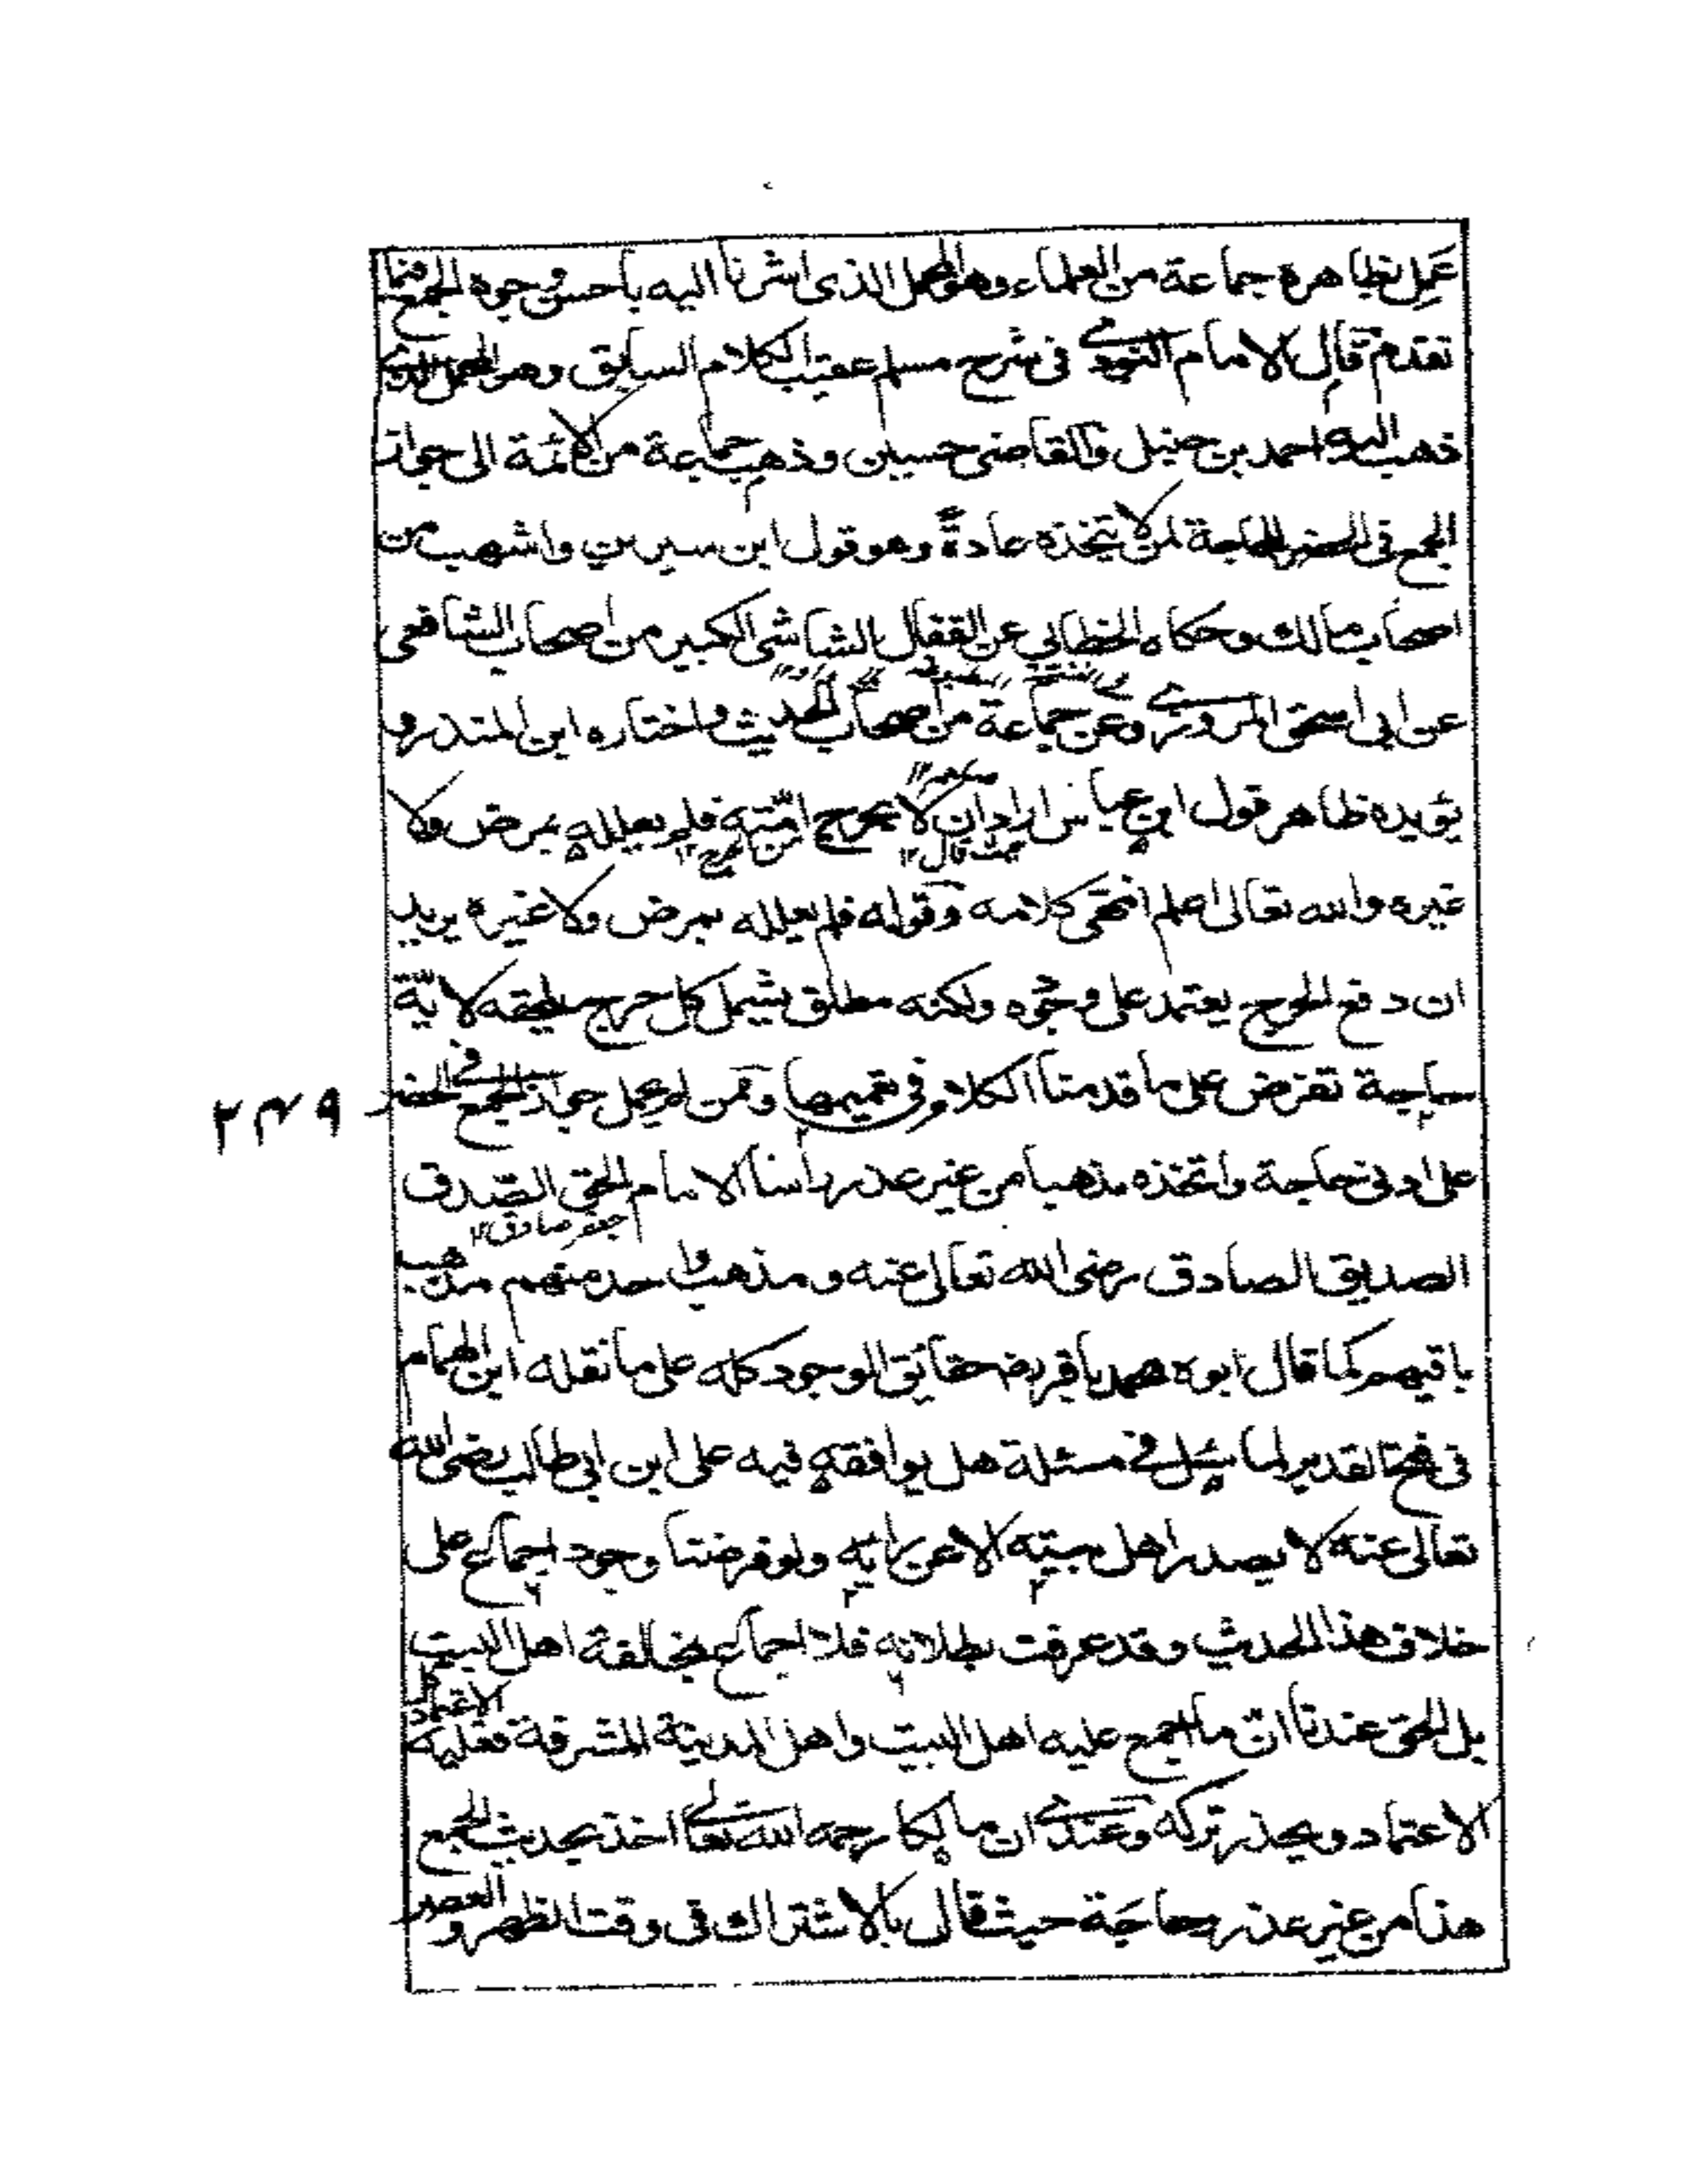 عَمِل بظاهره جماعة من العلماء وهو المحمل الذى اشرنا اليه باحسن وجوه الجمع فيما
تقدم قال الامام النووى فى شرح مسلم عقيب الكلام السابق وهو المحمل الذى
ذهب اليه احمد بن حنبل والقاضى حسين وذهب جماعة من الائمة الى جواز
الجمع فى الحضر للحاجة لمن لا يتخذه عادةً وهو قول ابن سيرين واشهب من
اصحاب مالك وحكاه الخطابي عن القفال الشاشى الكبير من اصحاب الشافعى
عن ابى اسحق المروزى وعن جماعة من اصحاب الحديث واختاره ابن المنذر و
يؤيده ظاهر قول ابن عباس اراد ان لا يحرج امّته فلم يعلله بمرض ولا
حيث قال ١٢
غيره والله تعالى اعلم انتهى كلامه وقوله فلم يعلله بمرض ولا غيره يريد
ان دفع الحرج يعتمد على وجوه ولكنه مطلق يشمل كل حرج يلحقه لايّة
حاجة تفرض على ما قدمنا الكلام فى تعميمها وممن يحمل جواز الجمع فى الحضر
٢٤٩
على ادنى حاجة واتخذه مذهبا من غير عذر راسنا الامام الحق الصّدق
جعفر صادق ١٢
الصديق الصادق رضى الله تعالى عنه ومذهب واحد منهم مذهب
باقيهم كما قال ابوه محمد باقر رضـ حقائق الوجود كله على ما نقله ابن الهمام
فى فتح القدير لما سُئل فى مسئلة هل يوافقه فيه على ابن ابى طالب رضى الله
تعالى عنه لا يصدر اهل بيته الا عن رايه ولو فرضنا وجود اجماع على
خلاف هذا الحديث وقد عرفت بطلانه فلا اجماع بمخالفة اهل البيت
بل الحق عندنا ان ما اجمع عليه اهل البيت واهل المدينة المشرفة فعليه
الاعتماد ويحذر تركه وعندى ان مالكا رحمه الله تعالى اخذ بحديث الجمع
هذا من غير عذر وحاجة حيث قال بالاشتراك فى وقت الظهر و العصر